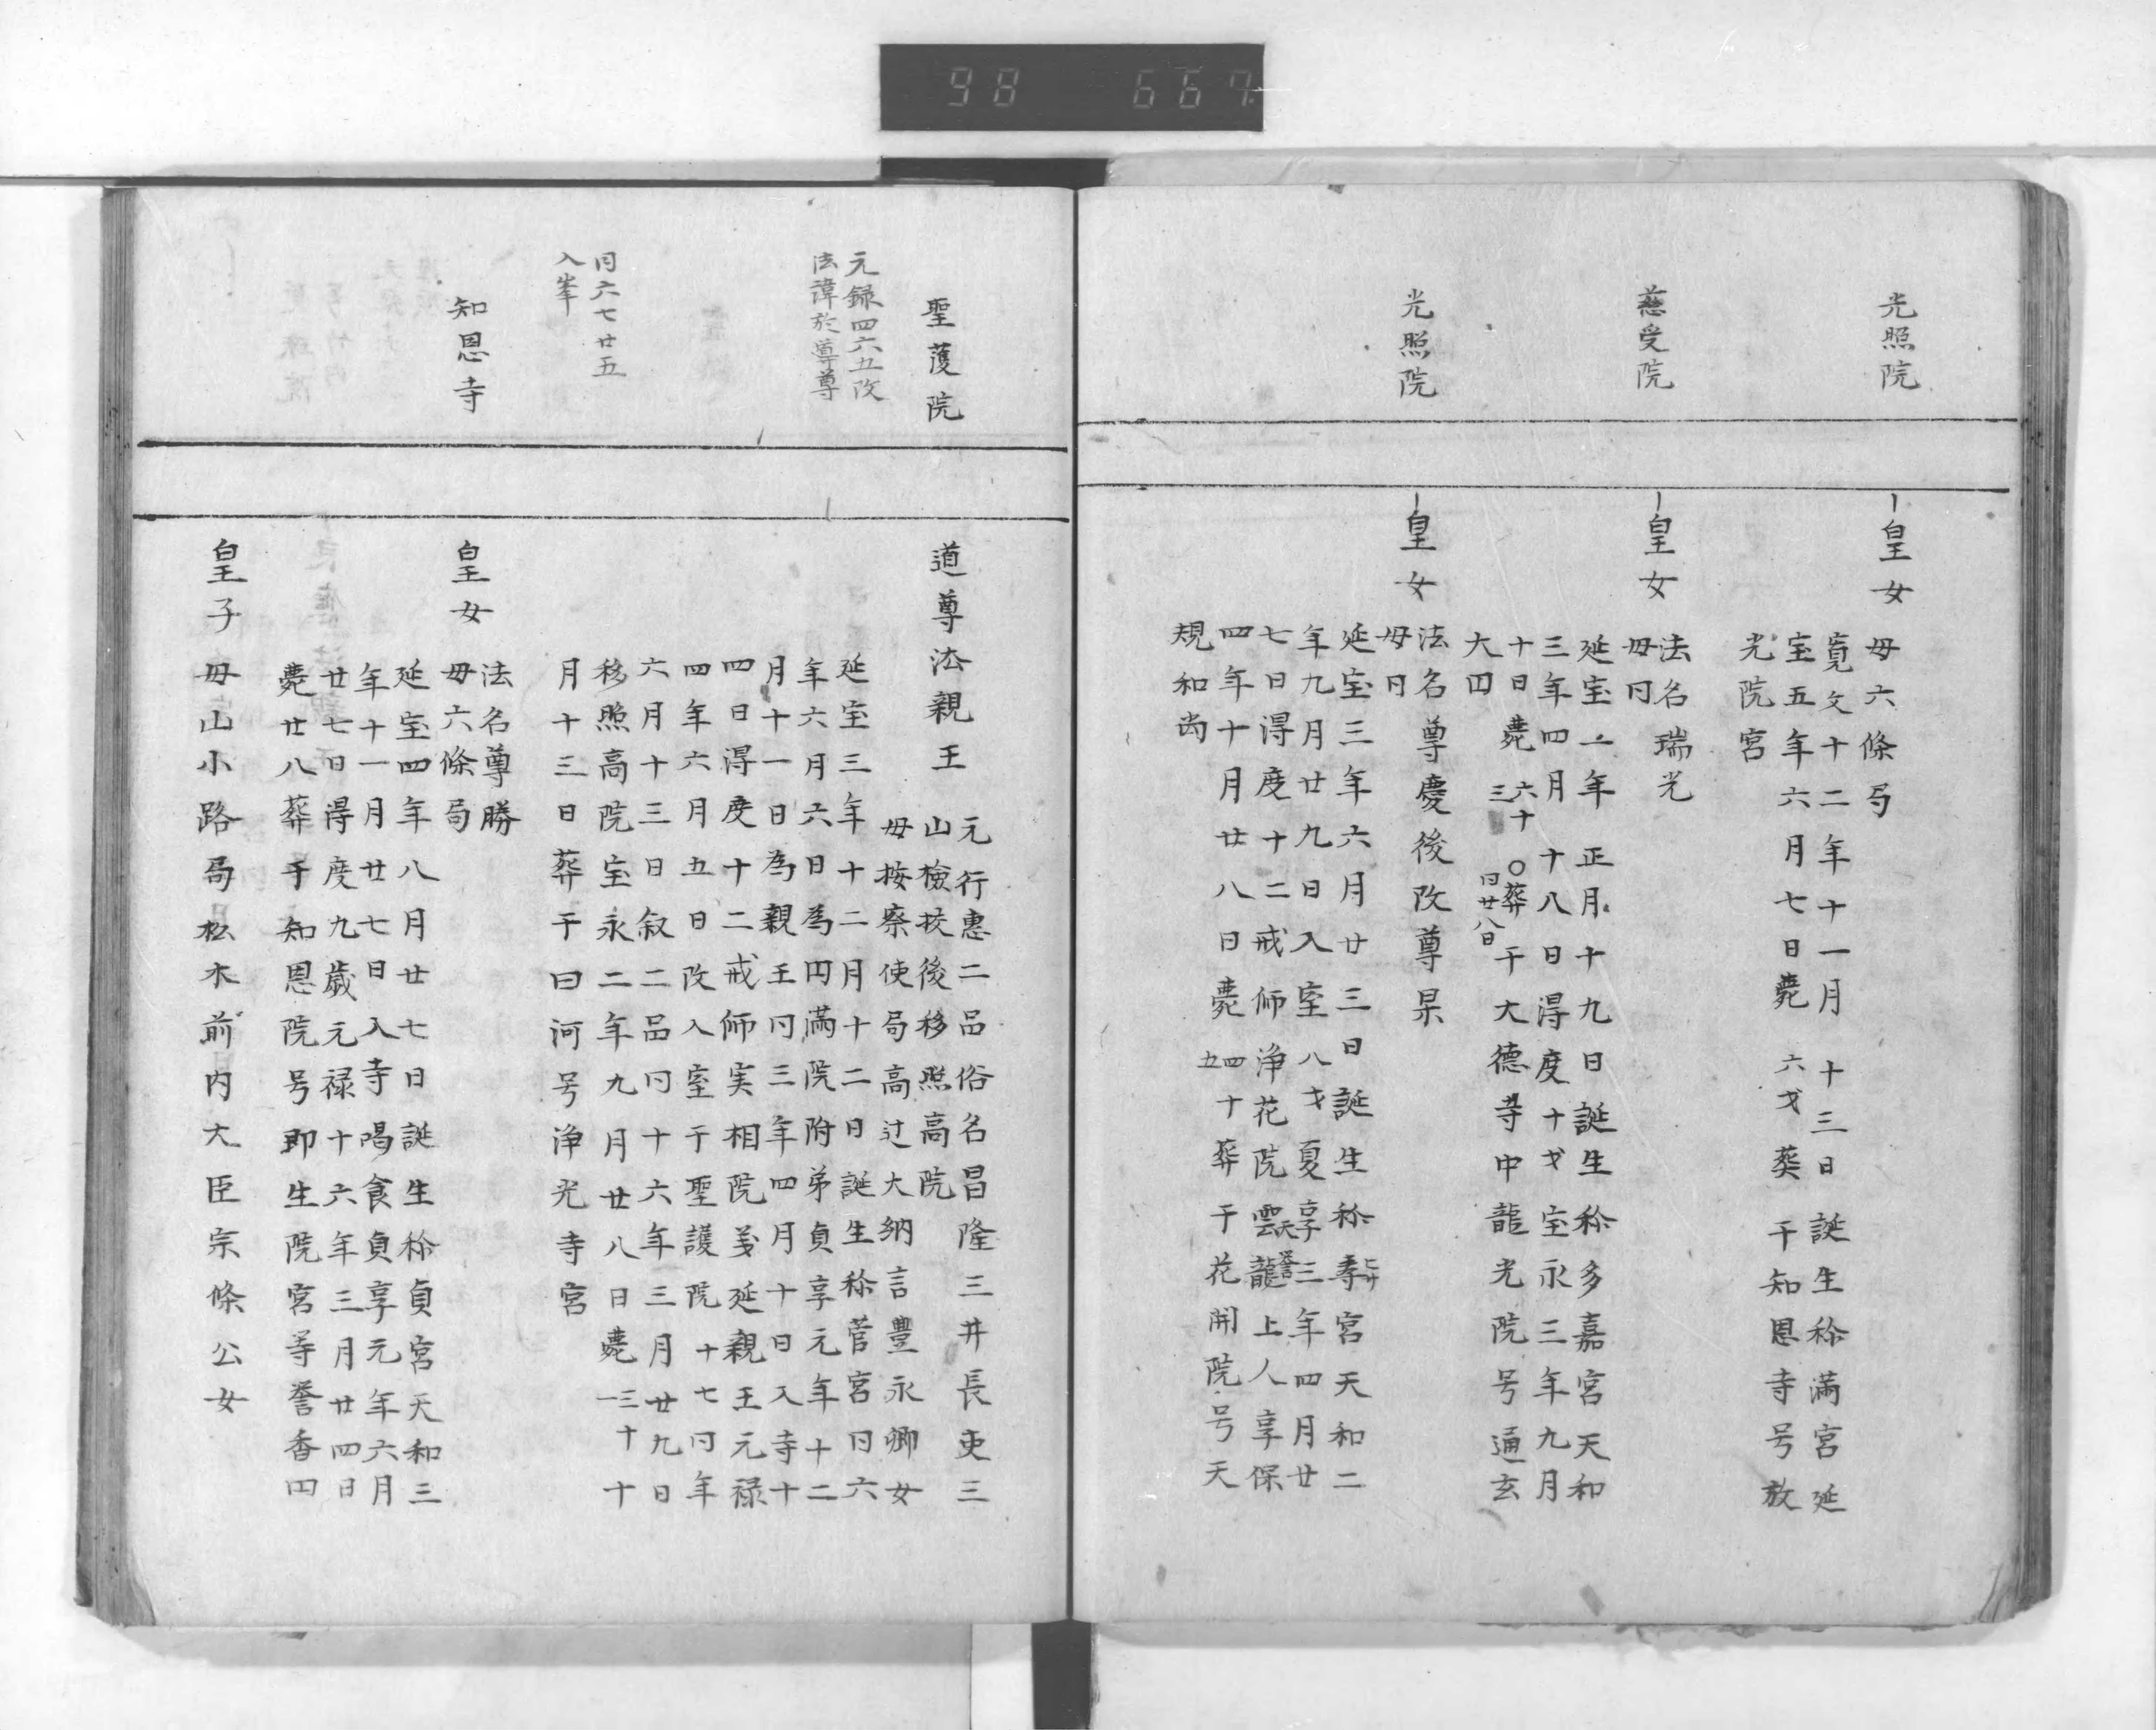 98 667
光照院
皇女
母六條局
寛文十二年十一月十三日誕生称満宮延
宝五年六月七日薨六才葵于知恩寺号放
光院宮
慈受院
皇女
法名瑞光
母同
延宝二年正月十九日誕生称多嘉宮天和
三年四月十八日得度十才宝永三年九月
十日薨六十三〇葬同廿八日于大徳寺中龍光院号通玄
大円
光照院
皇女
法名尊慶後改尊杲
母同
延宝三年六月廿三日誕生称寿宮天和二
年九月廿九日入室八才夏享三年四月廿
七日得度十二戒師浄花院雲龍上人享保
天誉
四年十月廿八日薨四十五葬于花開院号天
規和尚
聖護院
元録四六五改
法諱於尊尊
同六七廿五
入峯
道尊法親王
元行恵二品俗名昌隆三井長吏三
山檢挍後移照高院
母按察使局高辻大納言豊永卿女
延宝三年十二月十二日誕生称菅宮同六
年六月六日為円満院附弟貞享元年十二
月十一日為親王同三年四月十日入寺十
四日得度十二戒師実相院義延親王元禄
四年六月五日改入室于聖護院十七同年
六月十三日叙二品同十六年三月廿九日
移照高院宝永二年九月廿八日薨三十一十
月十三日葬于白河号浄光寺宮
知恩寺
皇女
法名尊勝
母六條局
延宝四年八月廿七日誕生称貞宮天和三
年十一月廿七日入寺喝食貞享元年六月
廿七日得度九歳元禄十六年三月廿四日
薨廿八葬于知恩院号即生院宮等誉香円
皇子
母山小路局松木前内大臣宗條公女